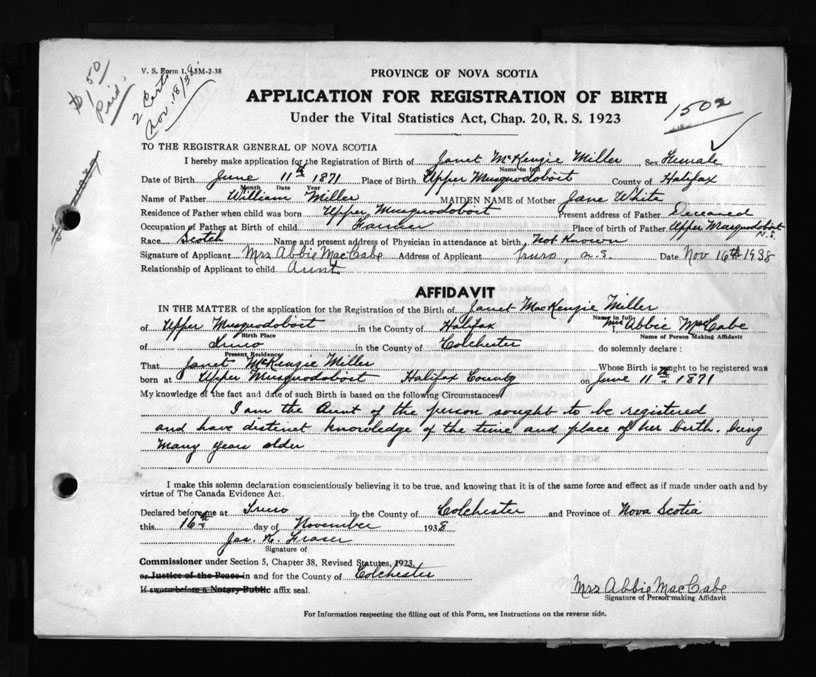 V. S. Form 1. 5M-2-38
$1.50
Paid.
2 Certs
Nov. 18/38
PROVINCE OF NOVA SCOTIA
APPLICATION FOR REGISTRATION OF BIRTH
1502
Under the Vital Statistics Act, Chap. 20, R. S. 1923
TO THE REGISTRAR GENERAL OF NOVA SCOTIA
I hereby make application for the Registration of Birth of Janet McKenzie Miller Sex Female
Name in full
Date of Birth June 11th 1871 Place of Birth Upper Musquodoboit County of Halifax
Month Date Year
Name of Father William Miller MAIDEN NAME of Mother Jane White
Residence of Father when child was born Upper Musquodoboit Present address of Father Deceased
Occupation of Father at Birth of child Farmer Place of birth of Father Upper Musquodoboit N.S.
Race Scotch Name and present address of Physician in attendance at birth, Not Known
Signature of Applicant Mrs Abbie MacCabe Address of Applicant Truro, N.S. Date Nov 16th 1938
Relationship of Applicant to child Aunt
AFFIDAVIT
IN THE MATTER of the application for the Registration of the Birth of Janet MacKenzie Miller
Name in full
of Upper Musquodoboit in the County of Halifax Mrs Abbie MacCabe
Birth Place Name of Person Making Affidavit
of Truro in the County of Colchester do solemnly declare:
Present Residence
That Janet McKenzie Miller Whose Birth is sought to be registered was
born at Upper Musquodoboit Halifax County on June 11th 1871
My knowledge of the fact and date of such Birth is based on the following Circumstances
I am the Aunt of the person sought to be registered
and have distinct knowledge of the time and place of her birth. Being
many years older
I make this solemn declaration conscientiously believing it to be true, and knowing that it is of the same force and effect as if made under oath and by
virtue of The Canada Evidence Act.
Declared before me at Truro in the County of Colchester and Province of Nova Scotia
this 16th day of November 1938
Jas. N. Fraser
Signature of
Commissioner under Section 5, Chapter 38, Revised Statutes, 1923,
or Justice of the Peace in and for the County of Colchester
If sworn before a Notary Public affix seal.
Mrs Abbie MacCabe
Signature of Person making Affidavit
For Information respecting the filling out of this Form, see Instructions on the reverse side.